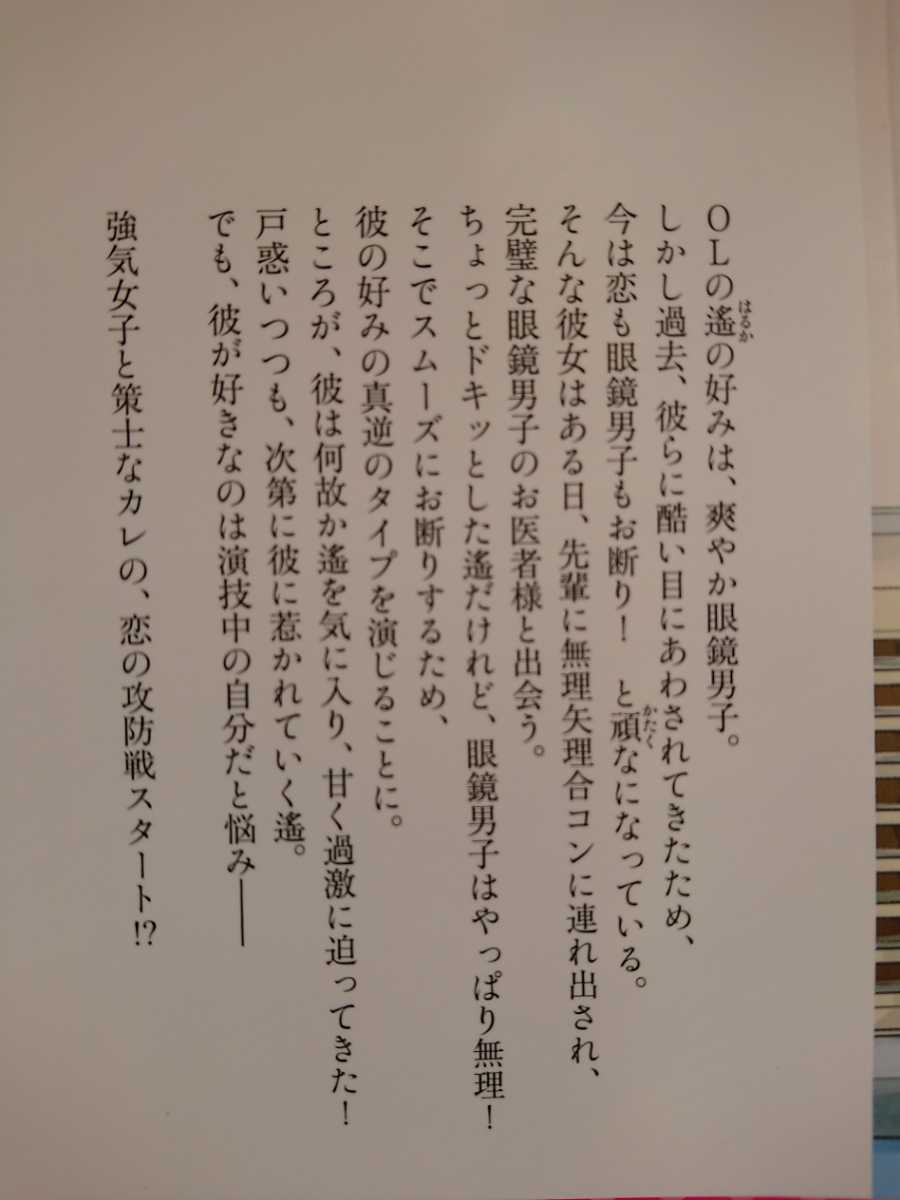 OLの遙の好みは、爽やか眼鏡男子。
しかし過去、彼らに酷い目にあわされてきたため、
今は恋も眼鏡男子もお断り！　と頑なになっている。
そんな彼女はある日、先輩に無理矢理合コンに連れ出され、
完璧な眼鏡男子のお医者様と出会う。
ちょっとドキッとした遙だけれど、眼鏡男子はやっぱり無理！
そこでスムーズにお断りするため、
彼の好みの真逆のタイプを演じることに。
ところが、彼は何故か遙を気に入り、甘く過激に迫ってきた！
戸惑いつつも、次第に彼に惹かれていく遙。
でも、彼が好きなのは演技中の自分だと悩み――
強気女子と策士なカレの、恋の攻防戦スタート!?
はるか
かたく